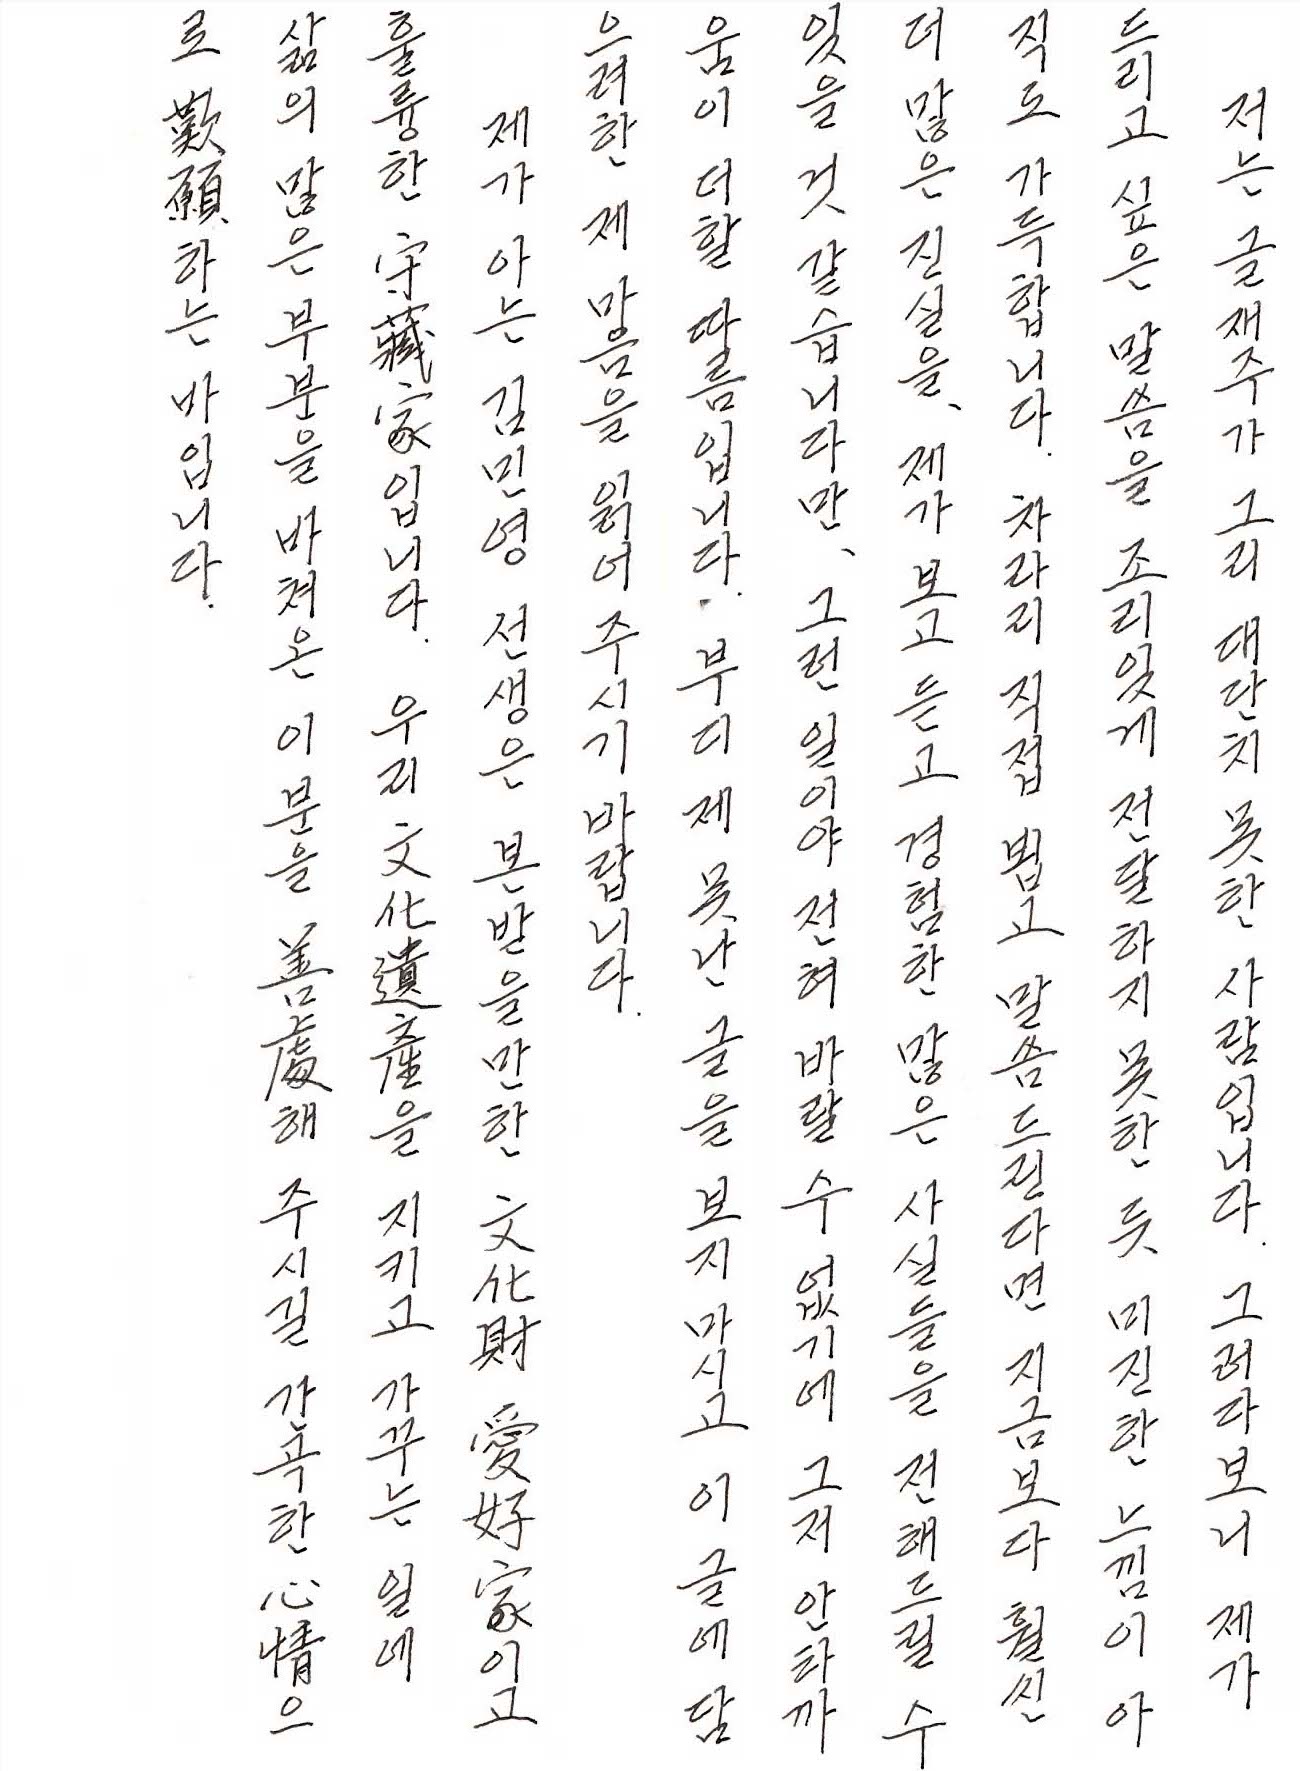 저는 글재주가 그리 대단치 못한 사람입니다. 그러다보니 제가
드리고 싶은 말씀을 조리있게 전달하지 못한 듯 미진한 느낌이 아
직도 가득합니다. 차라리 직접 뵙고 말씀드린다면 지금보다 훨씬
더 많은 진실을, 제가 보고 듣고 경험한 많은 사실들을 전해드릴 수
있을 것 같습니다만, 그런 일이야 전혀 바랄 수 없기에 그저 안타까
움이 더할 따름입니다. 부디 제 못난 글을 보지 마시고 이 글에 담
으려한 제 마음을 읽어 주시기 바랍니다.
제가 아는 김민영 선생은 본받을만한 文化財 愛好家이고
훌륭한 守藏家입니다. 우리 文化遺産을 지키고 가꾸는 일에
삶의 많은 부분을 바쳐온 이분을 善處해 주시길 간곡한 心情으
로 歎願하는 바입니다.